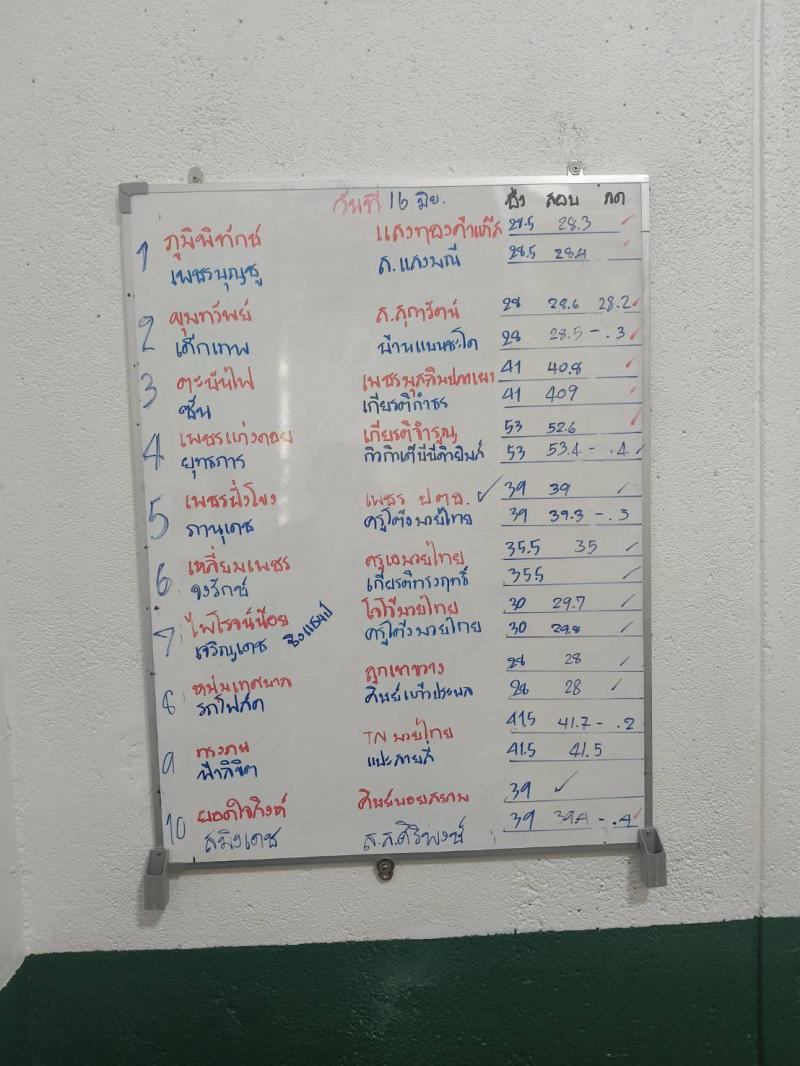 วันที่ 16 มิย. ชั่ง สอบ ลด
1 ภูมิพิทักษ์ แสงทองคำแก๊ส 28.5 28.3 ✓
เพชรบุญชู ส.แสงมณี 28.5 28.4
2 ขุมทรัพย์ ส.สุภารัตน์ 28 28.6 28.2 ✓
เด็กเทพ บ้านแบนชะโด 28 28.5 - .3 ✓
3 ตะบันไฟ 41 40.8 ✓
ซัน เกียรติกำธร 41 409 ✓
4 เพชรแก่งคอย เกียรติจำรูญ 53 52.6 ✓
ยุทธการ 53 53.4 - .4 ✓
5 เพชรฝั่งโขง เพชร ปตอ. ✓ 39 39 ✓
ภานุเดช ครูโต้งมวยไทย 39 39.3 - .3
6 เหลี่ยมเพชร ครูเอมวยไทย 35.5 35 ✓
จงรักษ์ เกียรติทรงฤทธิ์ 355 ✓
7 ไพโรจน์น้อย โจโจ้มวยไทย 30 29.7 ✓
เจริญเดช ชิงแชมป์ ครูโต้งมวยไทย 30 29.8 ✓
8 หนุ่มเทศบาล ลูกเขาขวาง 28 28 ✓
รถไฟลัด ศิษย์แก้วประพล 28 28 ✓
9 ทรงภพ TN มวยไทย 415 41.7 - .2
ฟ้าลิขิต แปะสายสี่ 41.5 41.5
10 ยอดใจสิงห์ ศิษย์บอยสยาม 39 ✓
สมิงเดช ส.ส.ศิริพงษ์ 39 39.4 - .4 ✓